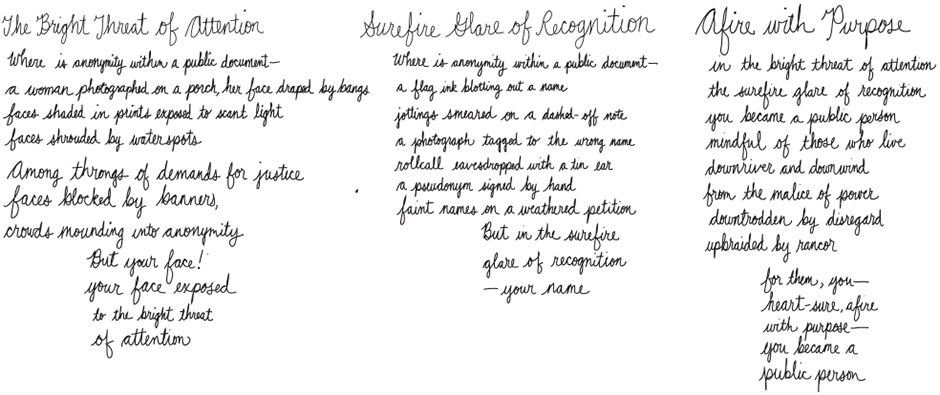 The Bright Threat of Attention
Where is anonymity within a public document—
a woman photographed on a porch, her face draped by bangs
faces shaded in prints exposed to scant light
faces shrouded by waterspots
Among throngs of demands for justice
faces blocked by banners,
crowds mounding into anonymity
But your face!
your face exposed
to the bright threat
of attention
Surefire Glare of Recognition
Where is anonymity within a public document—
a flag ink blotting out a name
jottings smeared on a dashed-off note
a photograph tagged to the wrong name
rollcall eavesdropped with a tin ear
a pseudonym signed by hand
faint names on a weathered petition
But in the surefire
glare of recognition
—your name
Afire with Purpose
in the bright threat of attention
the surefire glare of recognition
you became a public person
mindful of those who live
downriver and downwind
from the malice of power
downtrodden by disregard
upbraided by rancor
for them, you—
heart-sure, afire
with purpose—
you became a
public person